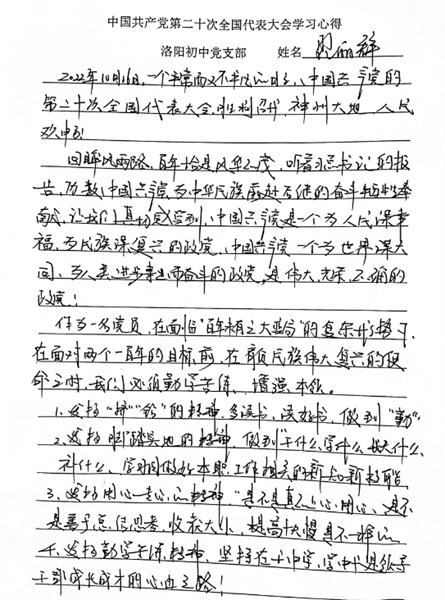 中国共产党第二十次全国代表大会学习心得
洛阳初中党支部 姓名 丽群
2022年10月16日,一个平常而又不平凡的日子,中国共产党的
第二十次全国代表大会胜利召开,神州大地 人民
欢呼!
回眸风雨路,百年恰是风华正茂,听着习总书记的报
告,历数中国共产党为中华民族前赴后继的奋斗和牺牲
贡献,让我们真切感受到,中国共产党是一个为人民谋幸
福,为民族谋复兴的政党,中国共产党一个为世界谋大
同、为人类进步事业而奋斗的政党,是伟大、光荣、正确的
政党!
作为一名党员,在面临"百年未有之大变局"的复杂形势下,
在面对两个一百年的目标前,在实现民族伟大复兴的使
命之时,我们必须勤学苦练,增强本领。
1、发扬"挤""钻"的精神,多读书,读好书,做到"勤"。
2、发扬脚踏实地的精神,做到"干什么学什么,缺什么、
补什么,学习同做好本职工作相关的新知识新技能
3、发扬用心一专心的精神,"是不是真正上心、用心,是不
是善于总结思考,收获大小,提高快慢是不一样的
4、发扬勤学苦练精神,坚持在干中学,学中干是领导
干部成长成才的必由之路!